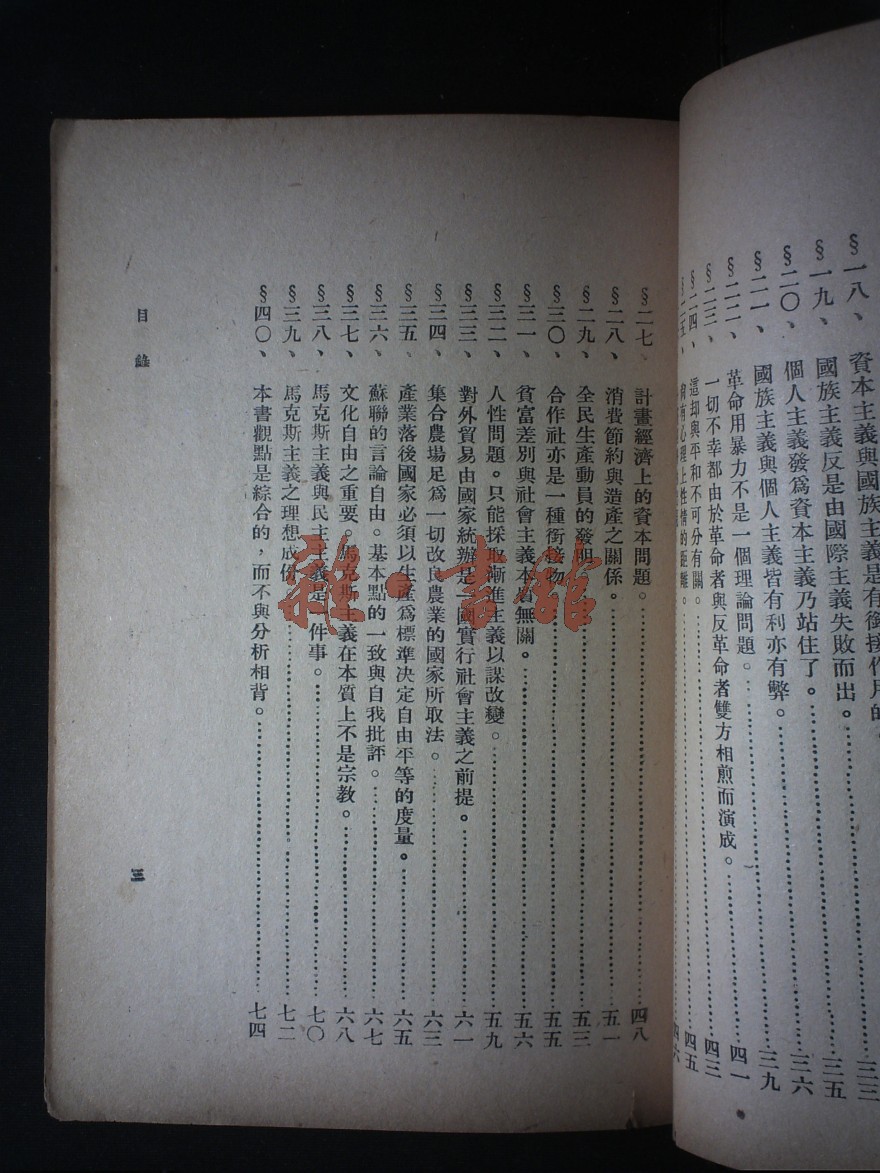 §一八、資本主義與國族主義是有銜接作用的。……三三
§一九、國族主義反是由國際主義失敗而出。……三五
§二〇、個人主義發爲資本主義乃站住了。……三六
§二一、國族主義與個人主義皆有利亦有弊。……三九
§二二、革命用暴力不是一個理論問題。……四一
§二三、一切不幸都由於革命者與反革命者雙方相煎而演成。……四三
§二四、這却與平和不可分有關。……四五
§二五、尚有心理上性情的距離。……四六
§二七、計畫經濟上的資本問題。……四八
§二八、消費節約與造產之關係。……五一
§二九、全民生產動員的發明……五三
§三〇、合作社亦是一種銜接物……五五
§三一、貧富差別與社會主義本身無關。……五六
§三二、人性問題。只能採取漸進主義以謀改變。……五九
§三三、對外貿易由國家統辦是一國實行社會主義之前提。……六一
§三四、集合農場足爲一切改良農業的國家所取法。……六三
§三五、產業落後國家必須以生產爲標準決定自由平等的度量。……六五
§三六、蘇聯的言論自由。基本點的一致與自我批評。……六七
§三七、文化自由之重要 馬克斯主義在本質上不是宗教。……六八
§三八、馬克斯主義與民主主義是一件事。……七〇
§三九、馬克斯主義之理想成份……七二
§四〇、本書觀點是綜合的，而不與分析相背。……七四
目錄
三
雜·書館